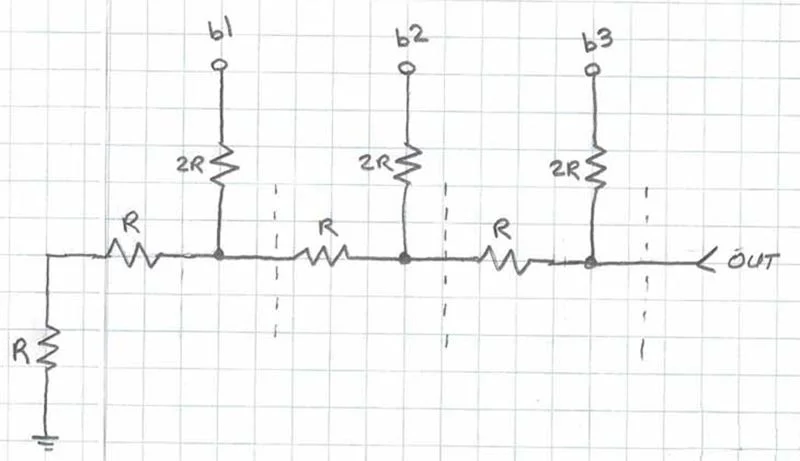 b1 b2 b3
2R 2R 2R
R R R
OUT
R